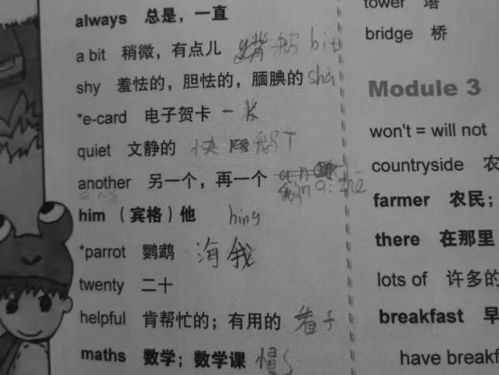 always 总是，一直
a bit 稍微，有点儿 嘴鹅 bit
shy 羞怯的，胆怯的，腼腆的 sha
*e-card 电子贺卡 一张
quiet 文静的 快 鹅T
another 另一个，再一个
him （宾格）他 hing
*parrot 鹦鹉 海我
twenty 二十
helpful 肯帮忙的；有用的 看子
maths 数学；数学课 慢S
tower 塔
bridge 桥
Module 3
won't = will not
countryside 农
farmer 农民；
there 在那里
lots of 许多的
breakfast 早
have breakf